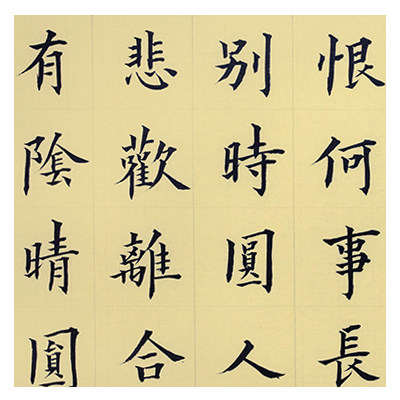 恨何事長
別時圓人
悲歡離合
有陰晴圓